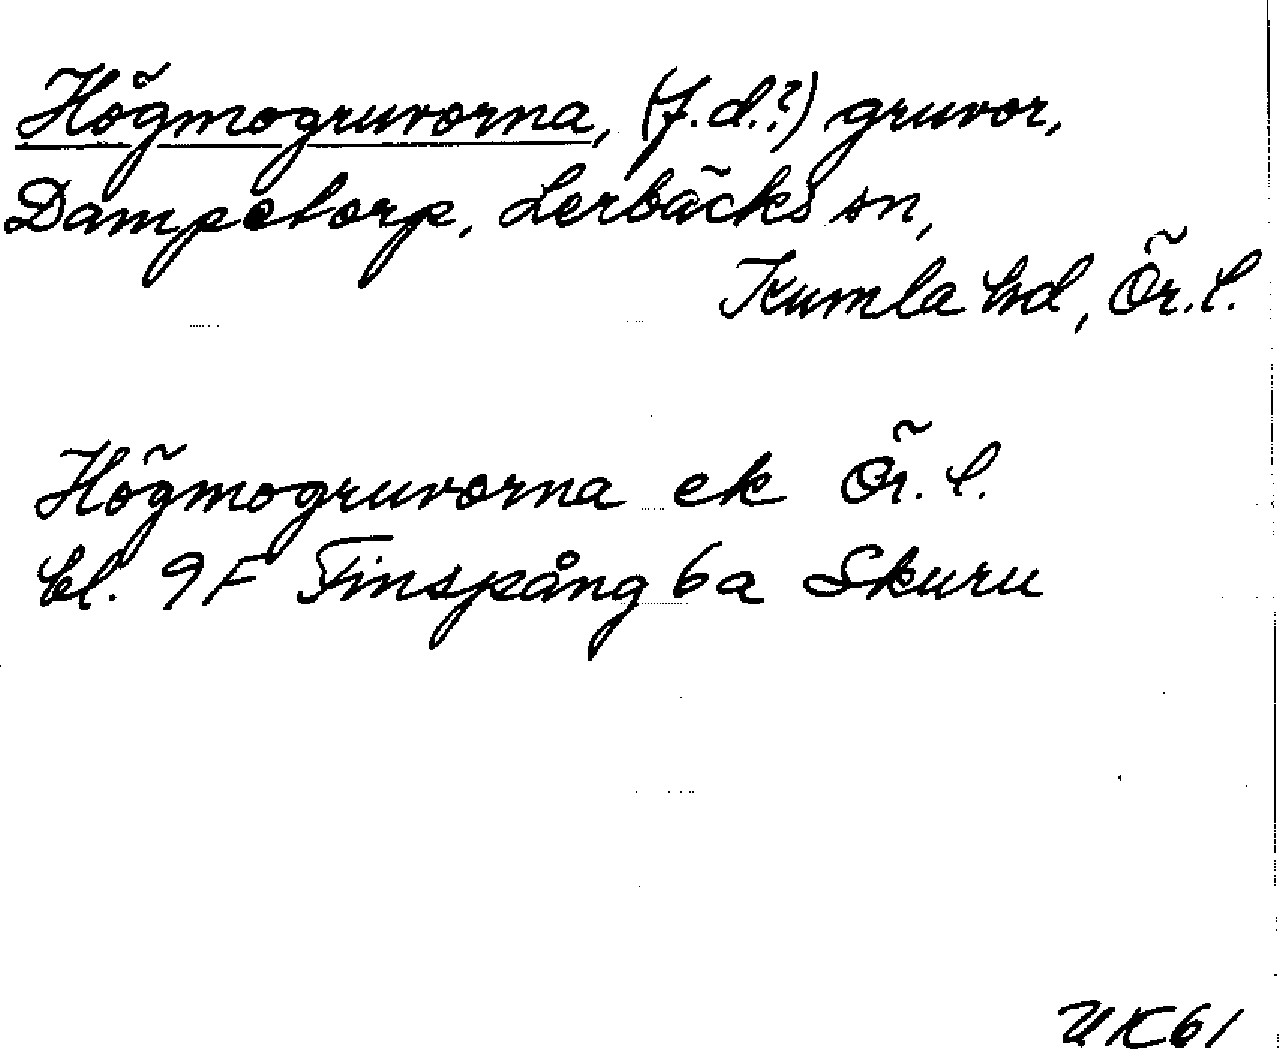 Högmogruvorna, (f.d.?) gruvor,
Dampetorp, Lerbäcks sn,
Kumla hd, Ör. l.
Högmogruvorna ek Ör. l.
bl. 9F Finspång 6a Skuru
UK61